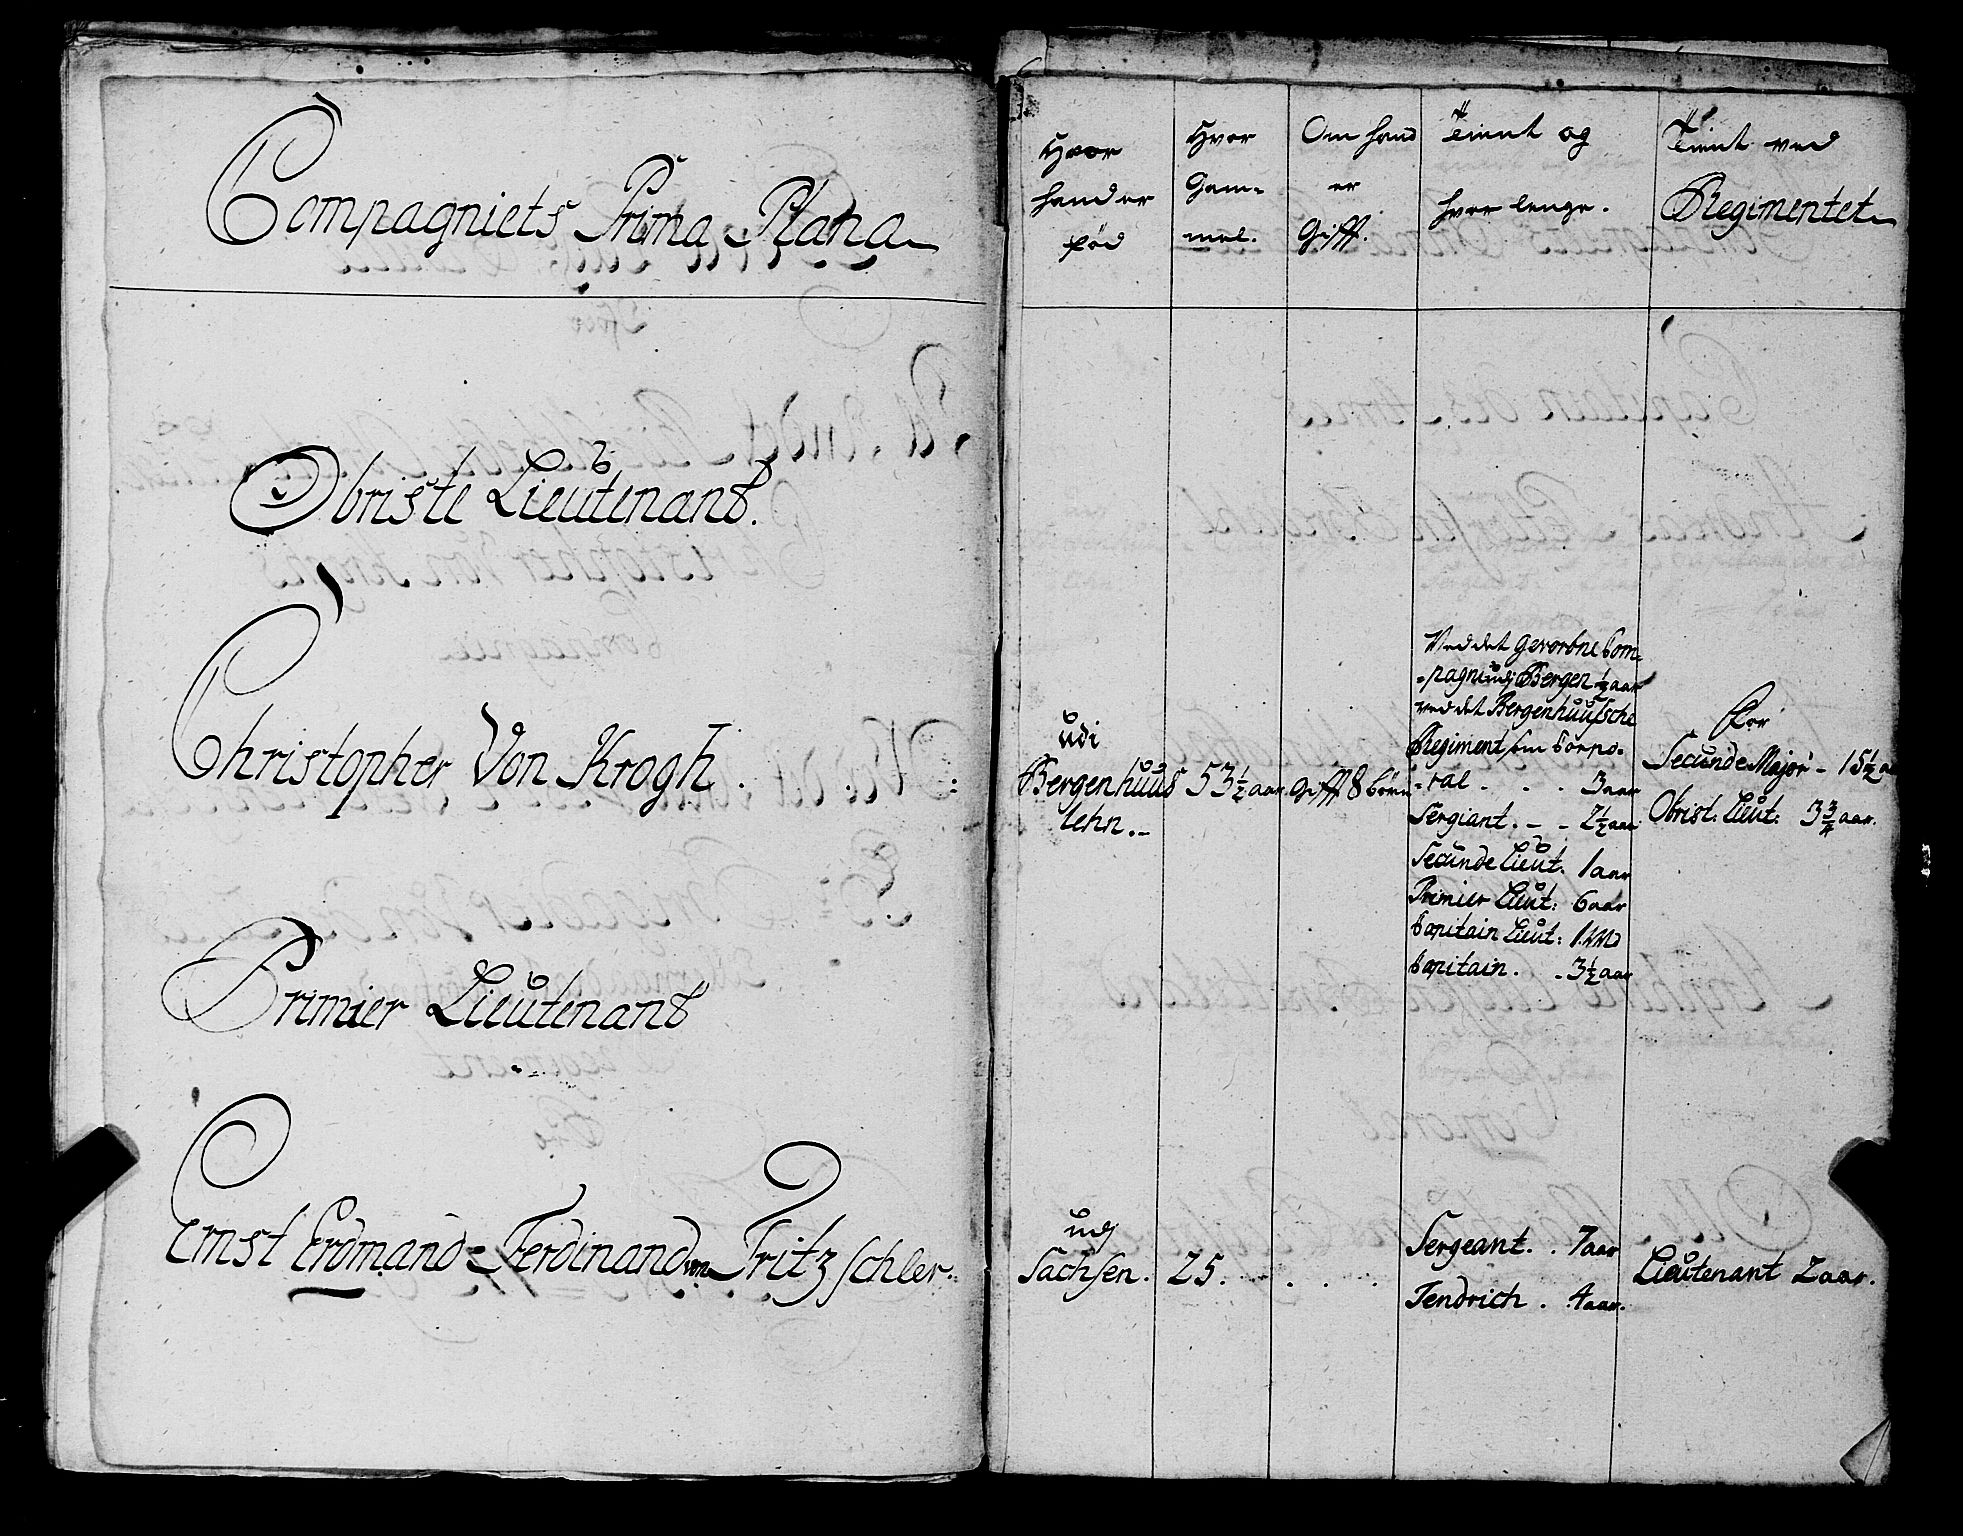 Compagniets Prima Plana
Obriste Lieutenant.
Christopher Von Krogh.
Primier Lieutenant
Ernst Erdmand Ferdinand von Fritzschler.
Hvor
hand er
fød
Hvor
Gam=
mel.
Om hand
er
Gifft.
Tient og
hvor lenge.
Tient ved
Regimentet
udi
Bergenhuus
lehn.
53½ aar.
Gifft 8 børn
Ved det Gevorbne Com=
=pagni udj Bergen ½ aar
ved det Bergenhuusche
Regiment som Corpo=
=ral . . . 3 aar
Sergiant. - - 2½ aar
Secunde Lieut. 1 aar
Primier Lieut: 6 aar
Capitain Lieut: 1. Md
Capitain. - 3½ aar
For
Secunde Major - 15½ a
Obrist: Lieut: 3¾ aar.
udj
Sachsen.
25.
Sergeant. . 7 aar
Fendrich . 4 aar.
Lieutenant 2 aar.